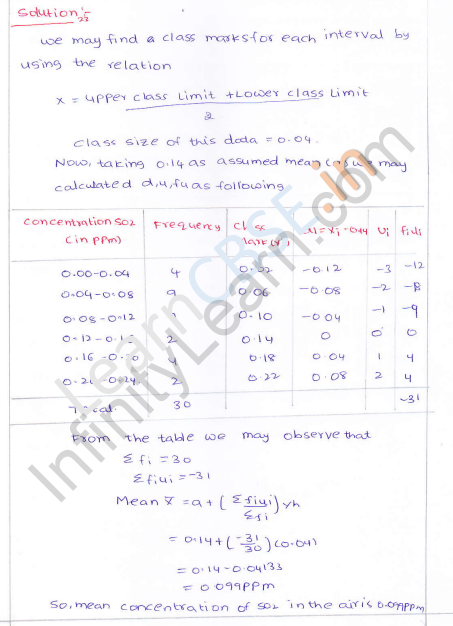 Solution:-
23
we may find a class marks for each interval by
using the relation
x = upper class Limit + Lower class Limit
2
class size of this data = 0.04.
Now, taking 0.14 as assumed mean (a) we may
calculated d,u,fu as following
Concentration SO2 Frequency Class di=xi-0.14 Ui fiui
(in ppm) mark(xi)
0.00-0.04 4 0.02 -0.12 -3 -12
0.04-0.08 9 0.06 -0.08 -2 -18
0.08-0.12 9 0.10 -0.04 -1 -9
0.12-0.16 2 0.14 0 0 0
0.16-0.20 4 0.18 0.04 1 4
0.20-0.24 2 0.22 0.08 2 4
Total 30 -31
From the table we may observe that
Σfi = 30
Σfiui = -31
Mean x̄ = a + (Σfiui/Σfi) xh
= 0.14 + (-31/30) (0.04)
= 0.14 - 0.04133
= 0.099 ppm
So, mean concentration of SO2 in the air is 0.099ppm
LearnCBSE.in
InfinityLearn.com